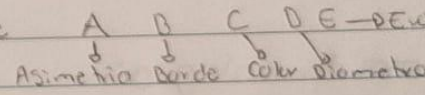 A B C D E
Asimetria Borde Color Diametro